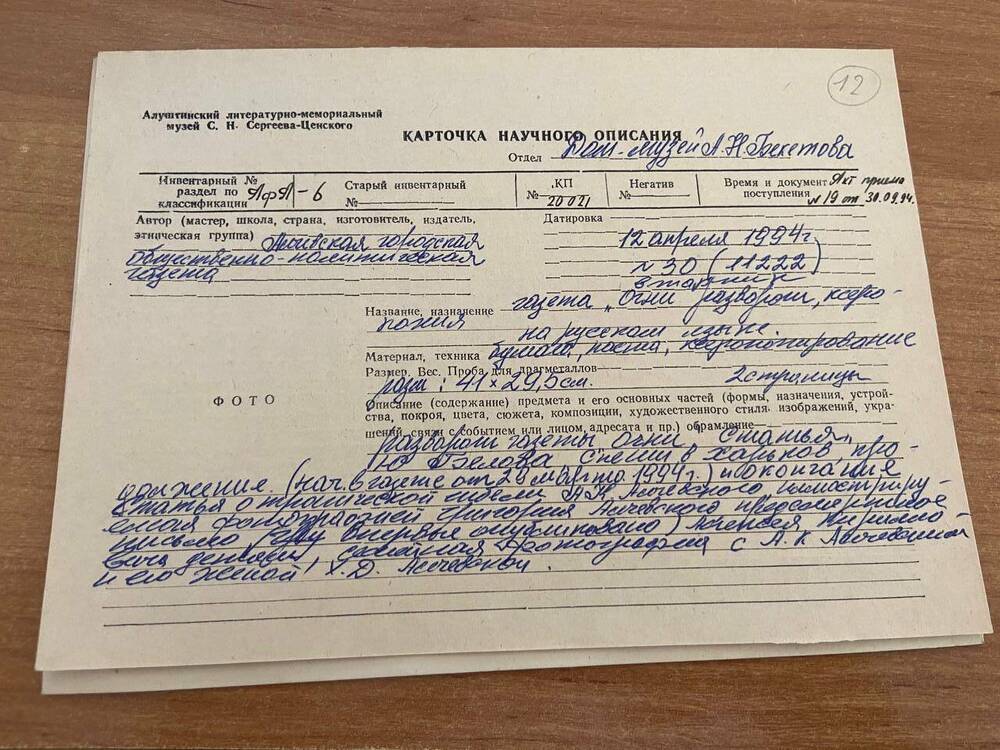 12
Алуштинский литературно-мемориальный
музей С. Н. Сергеева-Ценского
КАРТОЧКА НАУЧНОГО ОПИСАНИЯ
Отдел Дом-музей А. Н. Бекетова
Инвентарный №
раздел по
классификации АфА-6
Старый инвентарный
№
КП
№ 20021
Негатив
№
Время и документ
поступления Акт приема
№ 19 от 30.09.94.
Автор (мастер, школа, страна, изготовитель, издатель,
этническая группа) Алчевская городская
общественно-политическая
газета
Датировка
12 апреля 1994г.
№ 30 (11222)
вторник
Название, назначение газета „Огни разворот, ксеро-
копия
на русском языке.
Материал, техника бумага, паста, ксерокопирование
Размер. Вес. Проба для драгметаллов
разм: 41×29,5см. 2 страницы
ФОТО
Описание (содержание) предмета и его основных частей (формы, назначения, устрой-
ства, покроя, цвета, сюжета, композиции, художественного стиля изображений, укра-
шений, связи с событием или лицом, адресата и пр.) обрамление
разворот газеты Огни, Статья
Ю Белова в Харьков, про-
должение. (нач. в газете от 29 марта 1994г.) и окончание
статья о трагической гибели А.К. Алчевского
Григория Алчевского предсмертное
письмо впервые опубликовано) Алексея Кирилло-
вича фотография с А. К Алчевским
и его женой Х. Д. Алчевской.